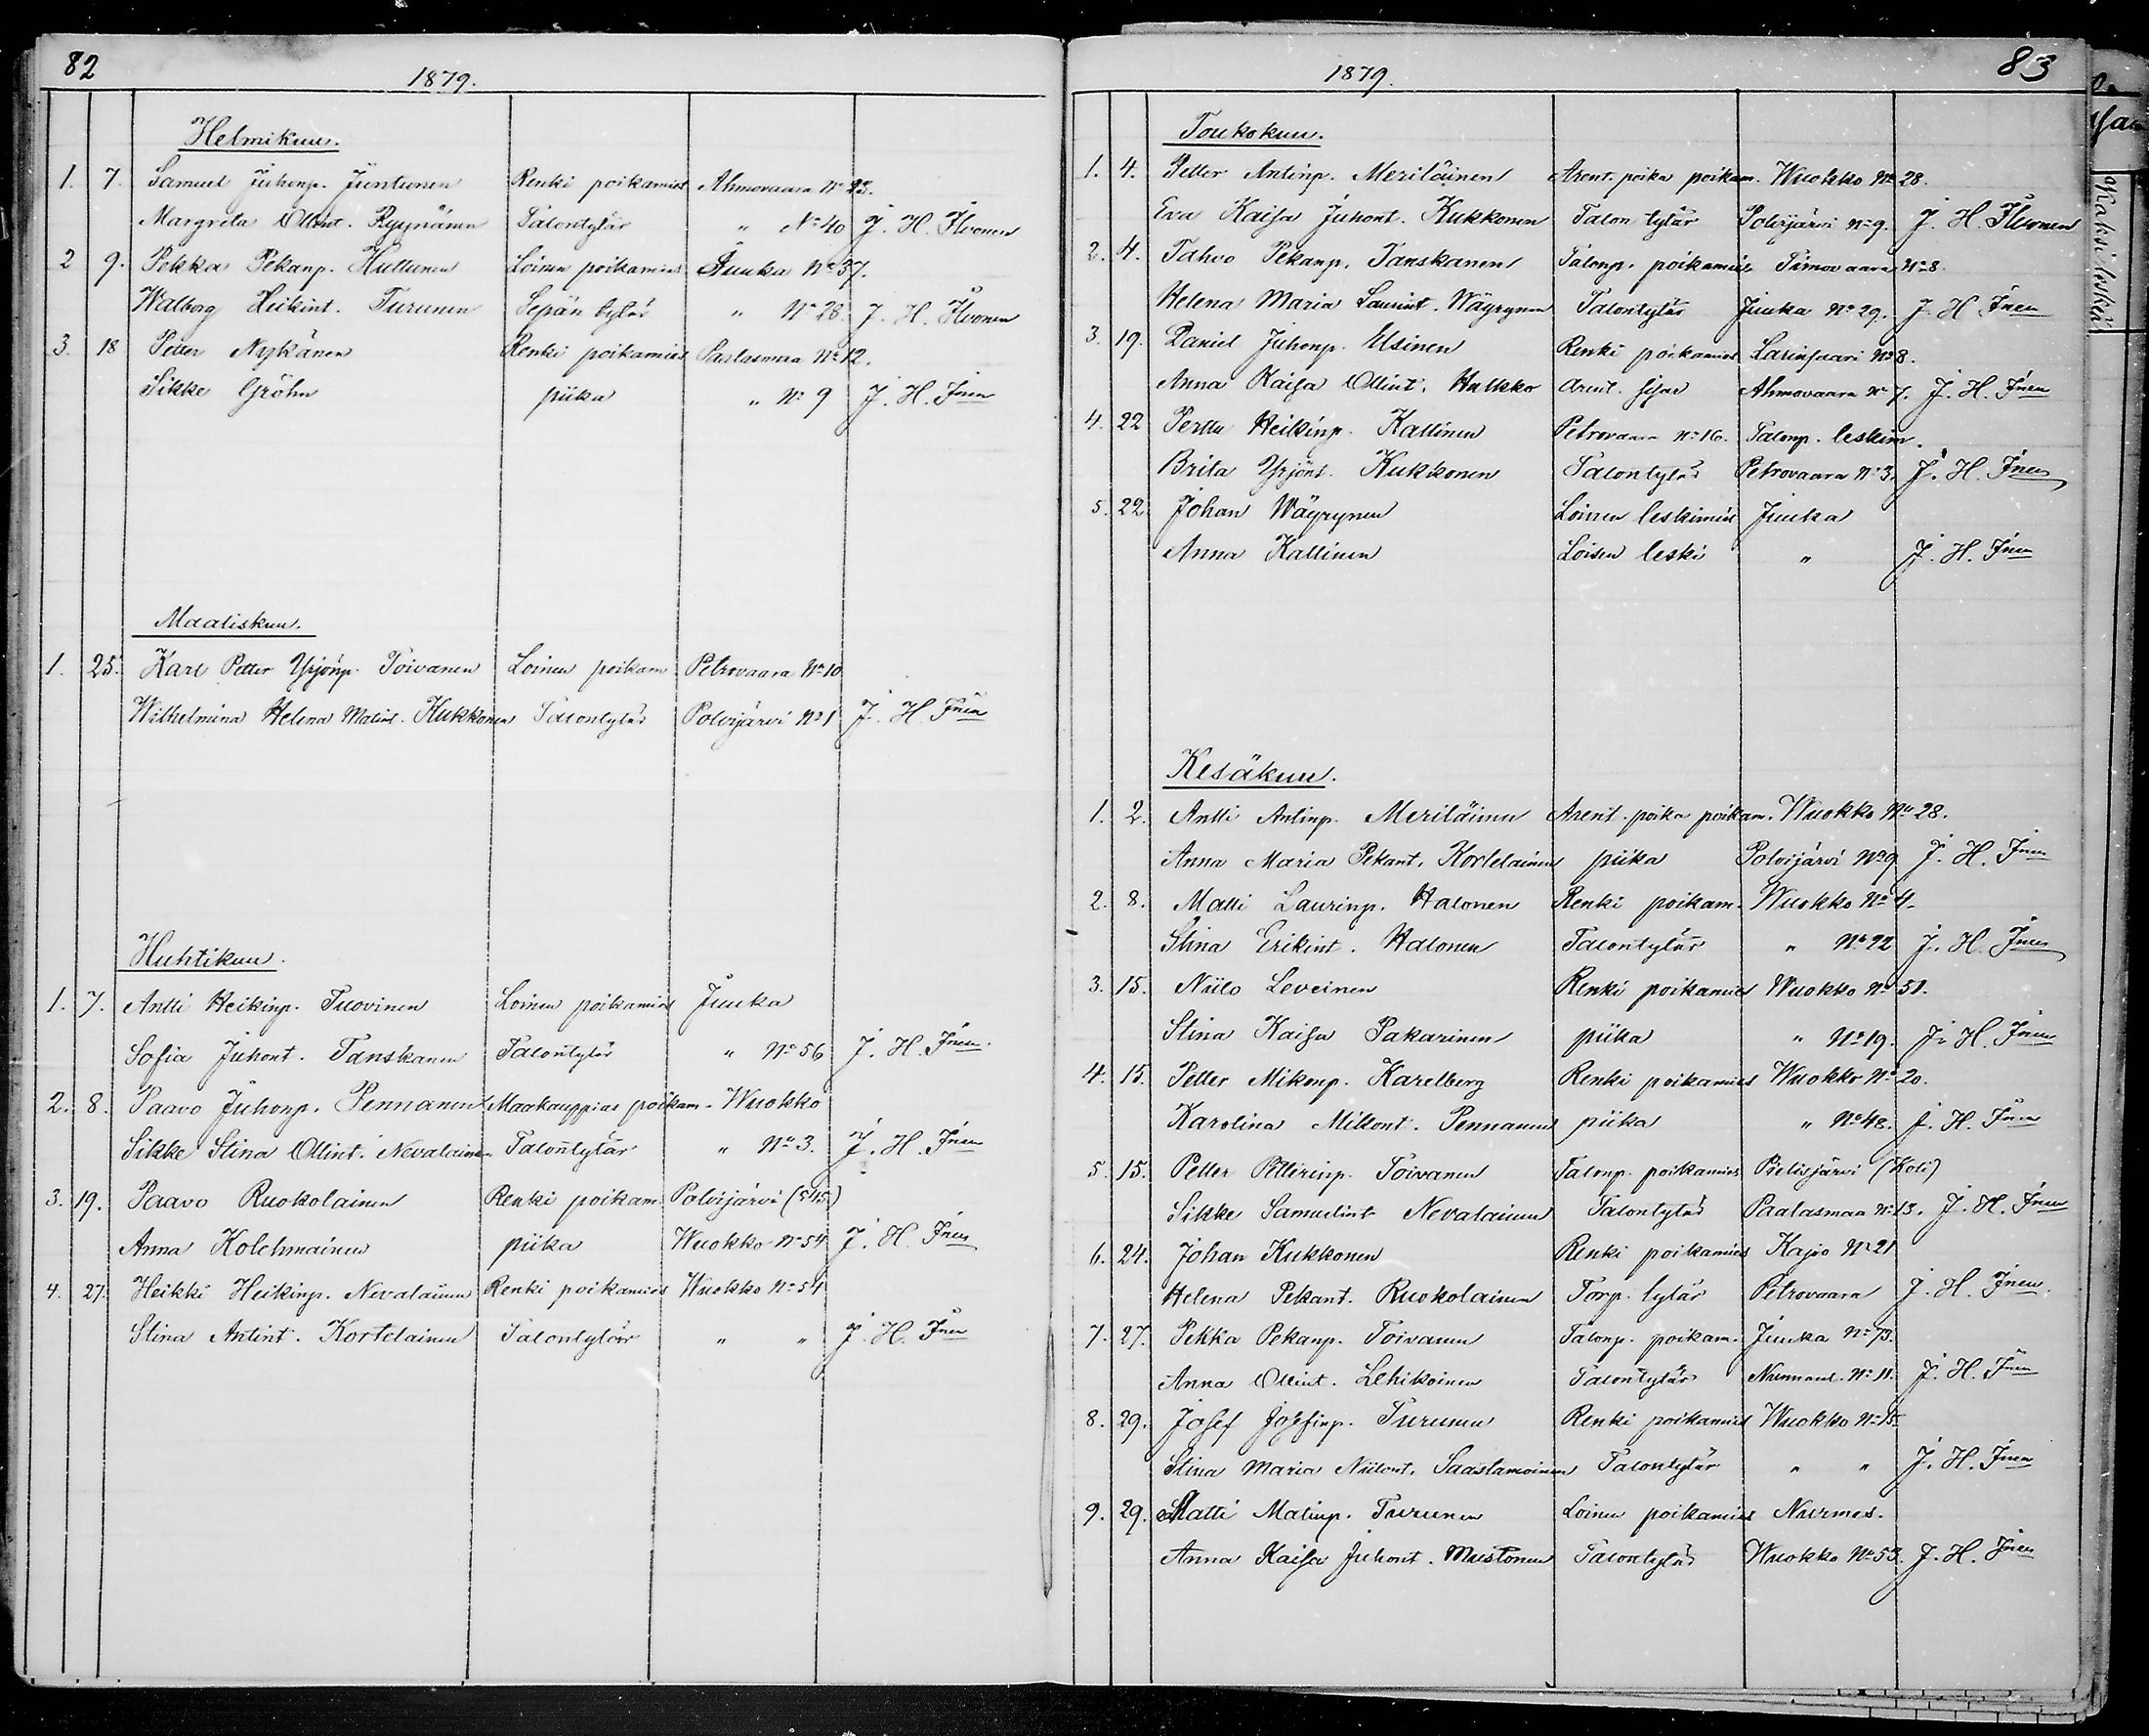 82
1879.
Helmikuu.
1. 7. Samuel Juhonp. Juntunen Renki poikamies Ahmovaara No 22.
Margreta Ollint. Ryynänen Talontytär " No 40 J. H. Ihvonen
2 9. Pekka Pekanp. Huttunen Loinen poikamies Juuka No 37.
Walborg Heikint. Turunen Sepän tytär " No 28. J. H. Ihvonen
3. 18 Petter Nykänen Renki poikamies Paalasmaa No 12.
Sikke Gröhn piika " No 9 J. H. Inen
Maaliskuu.
1. 25. Karl Petter Yrjönp. Toivanen Loinen poikam Petrovaara No 10
Wilhelmina Helena Matint. Kukkonen Talontytär Polvijärvi No 1 J. H. Inen
Huhtikuu.
1. 7. Antti Heikinp. Tuovinen Loinen poikamies Juuka
Sofia Juhont. Tanskanen Talontytär " No 56 J. H. Inen
2. 8. Paavo Juhonp. Pennanen Maakauppias poikam. Wuokko
Sikke Stina Ollint. Nevalainen Talontytär " No 3. J. H. Inen
3. 19. Paavo Ruokolainen Renki poikam. Polvijärvi (545)
Anna Kolehmainen piika Wuokko No 54 J. H. Inen
4. 27. Heikki Heikinp. Nevalainen Renki poikamies Wuokko No 54
Stina Antint. Kortelainen Talontytär " " J. H. Inen
1879.
83
Toukokuu.
1. 4. Petter Antinp. Meriläinen Arent. poika poikam. Wuokko No 28.
Eva Kaisa Juhont. Kukkonen Talon tytär Polvijärvi No 9. J. H. Ihvonen
2. 4. Tahvo Pekanp. Tanskanen Talonp. poikamies Timovaara No 8.
Helena Maria Laurint. Wäyrynen Talontytär Juuka No 29. J. H. Inen
3. 19. Daniel Juhonp. Usinen Renki poikamies Larinsaari No 8.
Anna Kaisa Ollint. Hulkko Arent. sisar Ahmovaara No 7. J. H. Inen
4. 22 Perttu Heikinp. Kallinen Petrovaara No 16. Talonp. leskim.
Brita Yrjönt. Kukkonen Talontytär Petrovaara No 3. J. H. Inen
5. 22. Johan Wäyrynen Loinen leskimies Juuka
Anna Kallinen Loisen leski " J. H. Inen
Kesäkuu.
1. 2. Antti Antinp. Meriläinen Arent. poika poikam. Wuokko No 28.
Anna Maria Pekant. Kortelainen piika Polvijärvi No 9 J. H. Inen
2. 8. Matti Laurinp. Halonen Renki poikam. Wuokko No 4.
Stina Erikint. Halonen Talontytär " No 22 J. H. Inen
3. 15. Niilo Leveinen Renki poikamies Wuokko No 51.
Stina Kaisa Pakarinen piika " No 19. J. H. Inen
4. 15. Petter Mikonp. Karelberg Renki poikamies Wuokko No 20.
Karolina Mikont. Pennanen piika " No 48. J. H. Inen
5. 15. Petter Petterinp. Toivanen Talonp. poikamies Pielisjärvi (Koli)
Sikke Samuelint Nevalainen Talontytär Paalasmaa No 13. J. H. Inen
6. 24. Johan Kukkonen Renki poikamies Kajoo No 21
Helena Pekant. Ruokolainen Torp. tytär Petrovaara J. H. Inen
7. 27. Pekka Pekanp. Toivanen Talonp. poikam. Juuka No 73.
Anna Ollint. Lehikoinen Talontytär Nunnanl. No 11. J. H. Inen
8. 29. Josef Josefinp. Turunen Renki poikamies Wuokko No 15.
Stina Maria Niilont. Saastamoinen Talontytär " " J. H. Inen
9. 29. Matti Matinp. Turunen Loinen poikamies Nurmes.
Anna Kaisa Juhont. Mustonen Talontytär Wuokko No 53. J. H. Inen